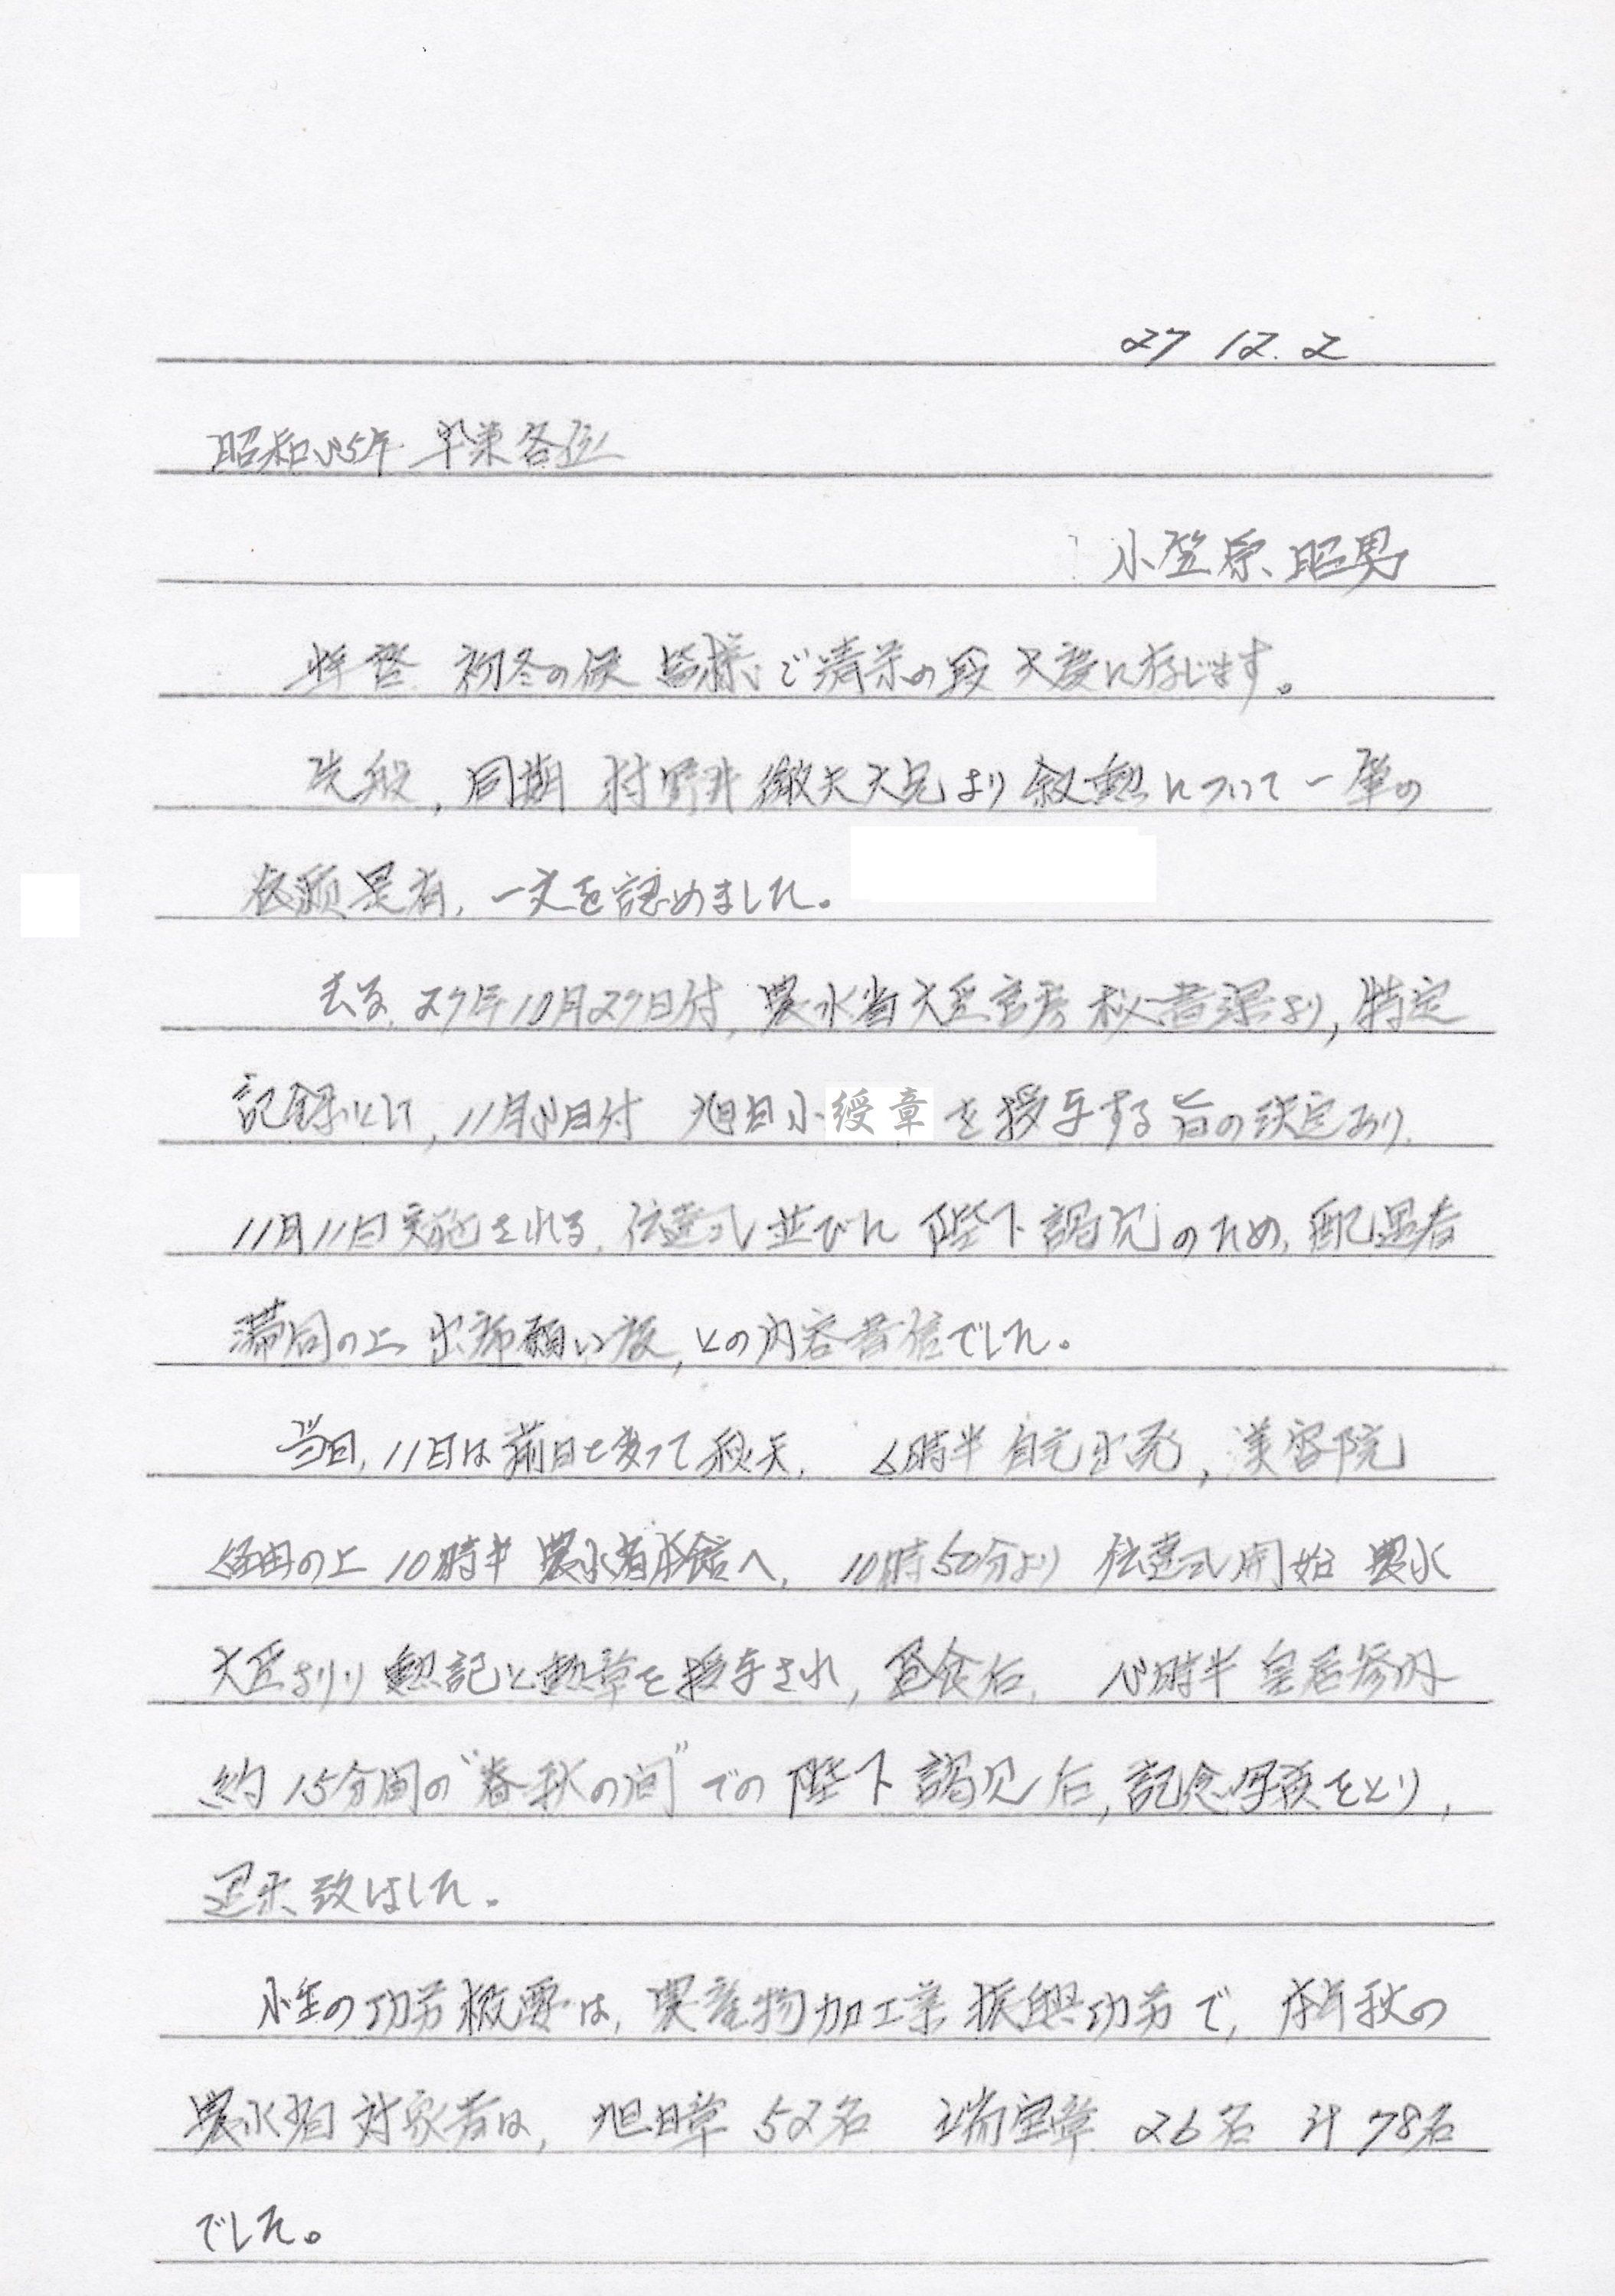 27 12. 2
昭和35年 卒業各位
小笠原 昭男
拝啓 初冬の候 皆様ご清栄の段 大慶に存じます。
先般, 同期 村野井 徹夫大兄より 叙勲について一筆の
依頼是有, 一文を認めました。
去る, 27年10月27日付, 農水省大臣官房 秘書課より, 特定
記録にて, 11月3日付 旭日小綬章を授与する旨の決定あり,
11月11日実施される, 伝達式並びに 陛下謁見のため, 配遇者
帯同の上 出席願い度, との内容書信でした。
当日, 11日は前日と変って秋天, 6時半 自宅出発, 美容院
経由の上 10時半 農水省本館へ, 10時50分より 伝達式開始 農水
大臣より 勲記と勲章を授与され, 昼食后, 13時半 皇居参内
約15分間の“春秋の間”での 陛下 謁見后, 記念写真をとり,
退出致しました。
小生の功労概要は, 農産物加工業振興功労で, 本年秋の
農水省対象者は, 旭日章 52名 瑞宝章 26名 計 78名
でした。